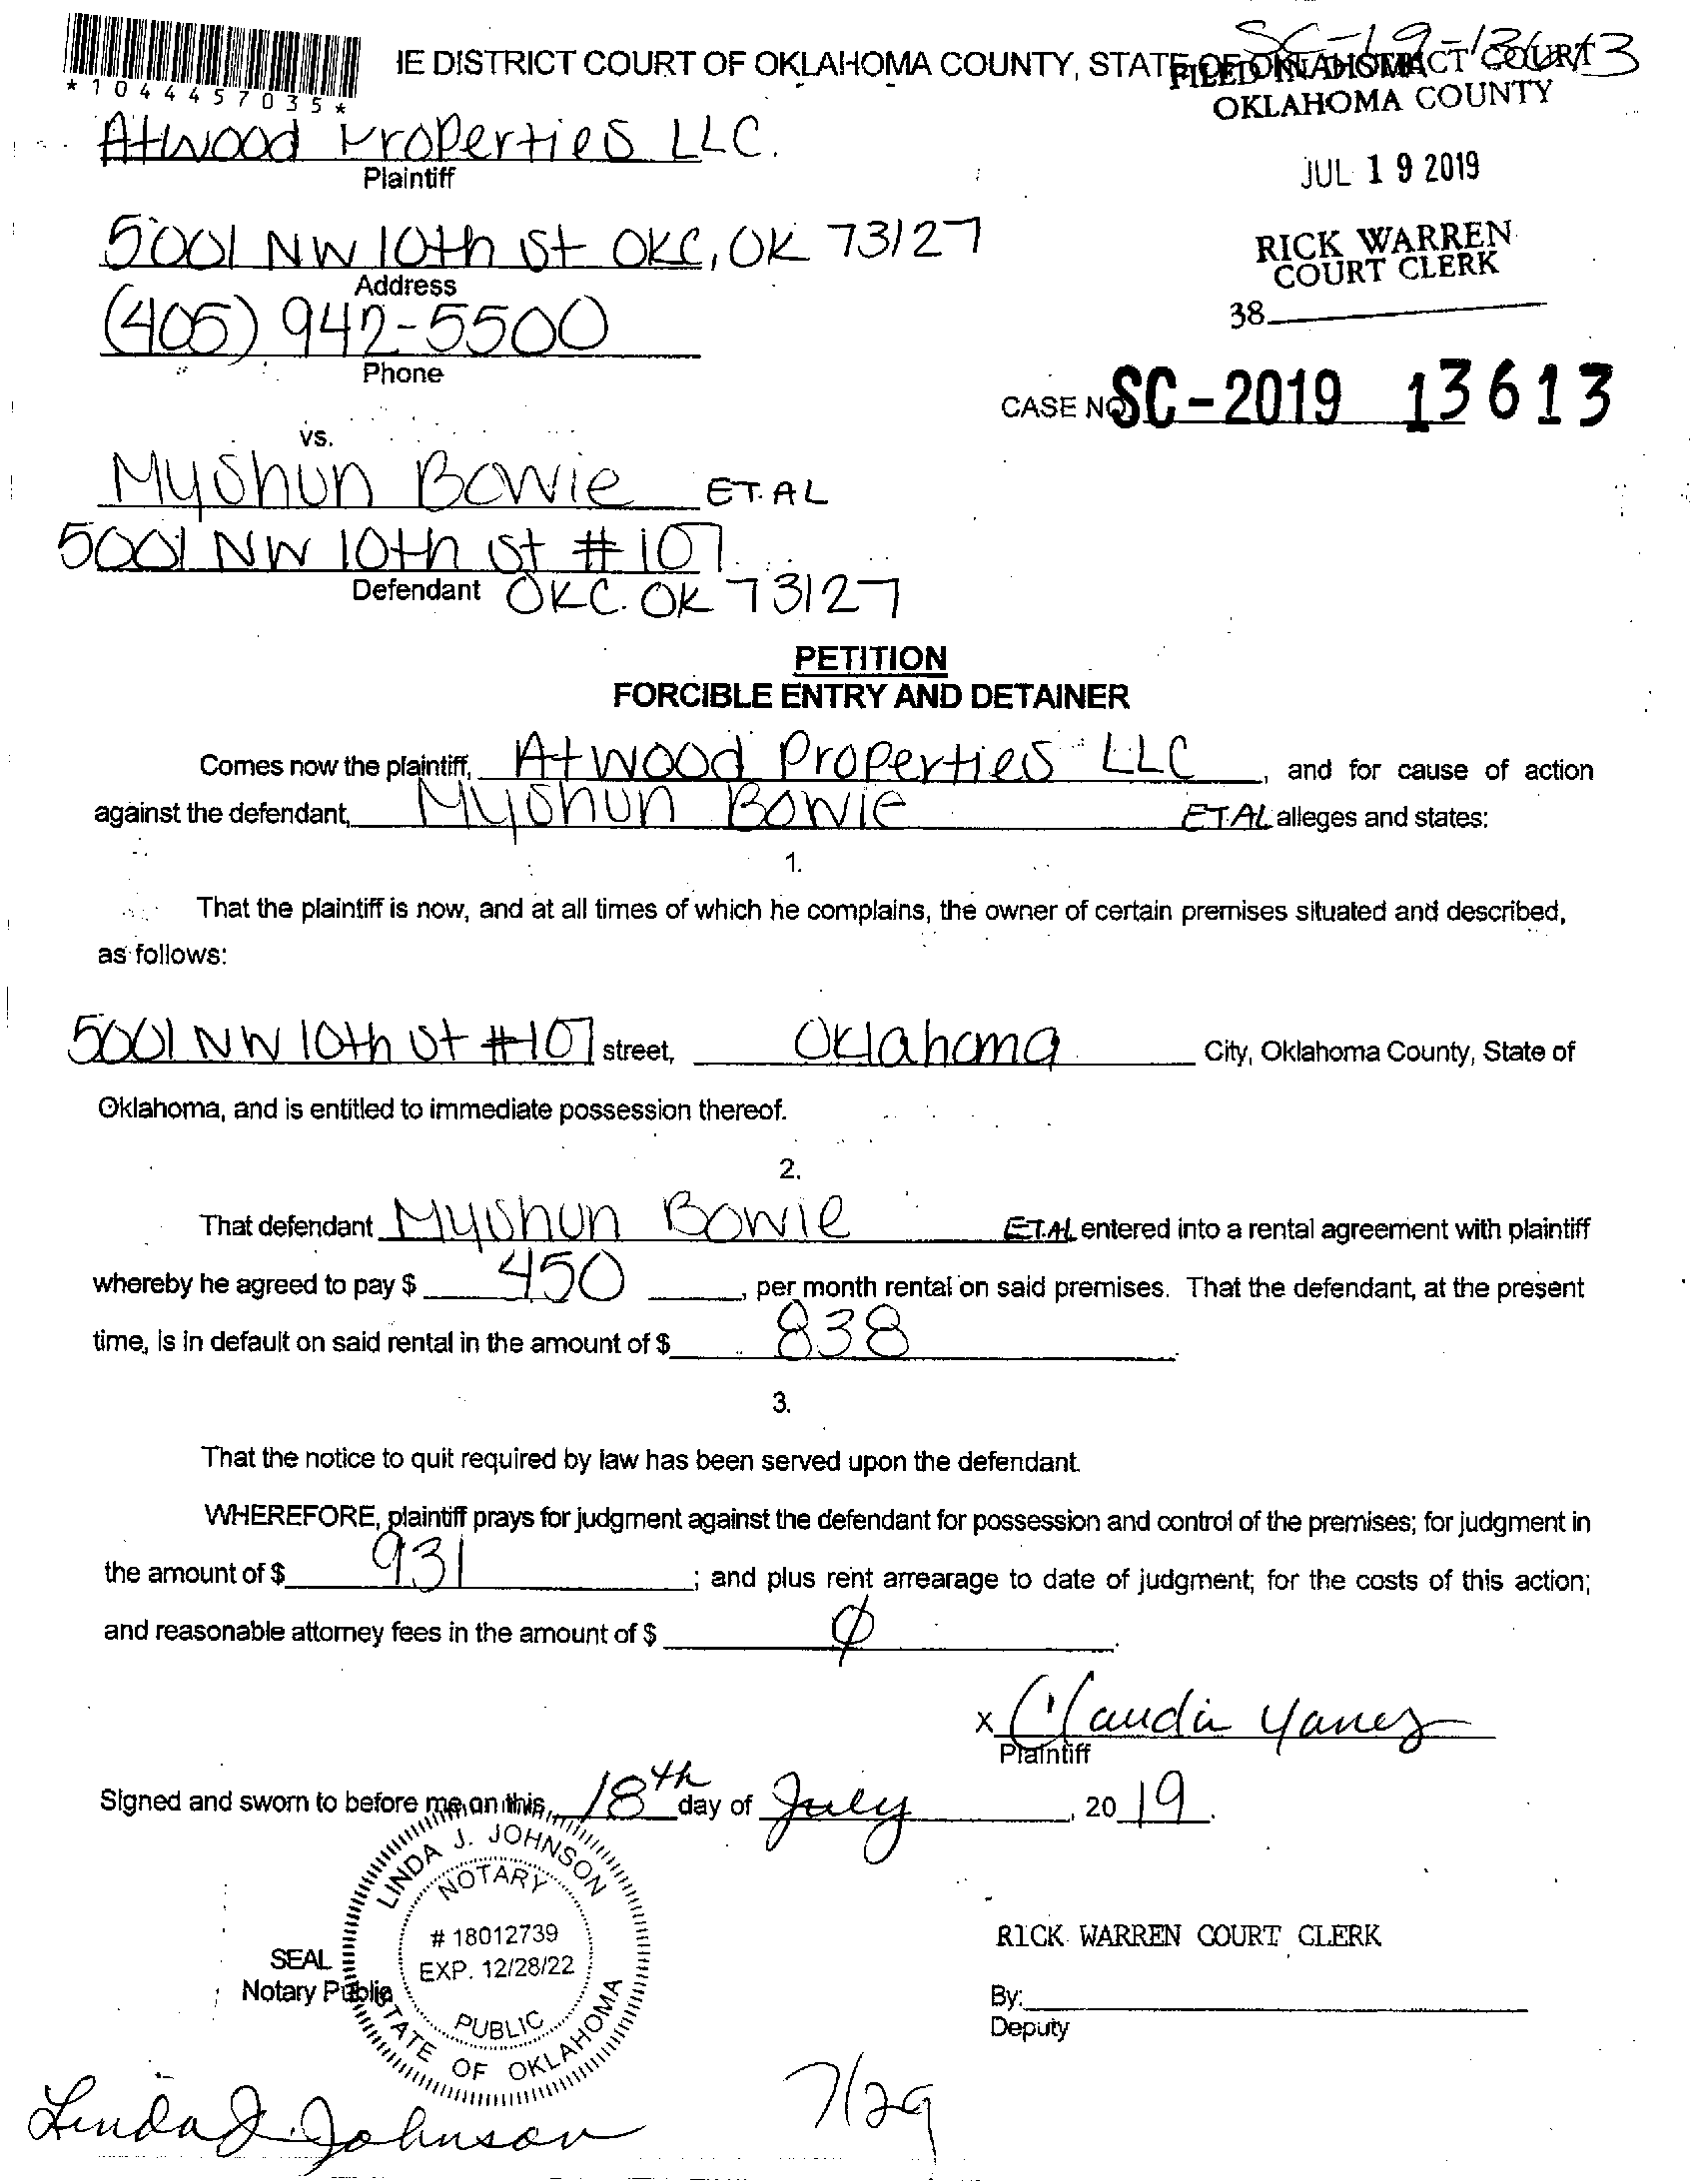 SC-19-13613
IE DISTRICT COURT OF OKLAHOMA COUNTY, STATE OF OKLAHOMA
FILED IN DISTRICT COURT
OKLAHOMA COUNTY
*1044457035*
Atwood Properties LLC.
Plaintiff
JUL 19 2019
5001 NW 10th St OKC, OK 73127
Address
RICK WARREN
COURT CLERK
38
(405) 942-5500
Phone
CASE NO. SC-2019 13613
vs.
Myshun Bowie ET.AL
5001 NW 10th St #107
Defendant OKC. OK 73127
PETITION
FORCIBLE ENTRY AND DETAINER
Comes now the plaintiff, Atwood Properties LLC, and for cause of action
against the defendant, Myshun Bowie ET.AL alleges and states:
1.
That the plaintiff is now, and at all times of which he complains, the owner of certain premises situated and described,
as follows:
5001 NW 10th St #107 street, Oklahoma City, Oklahoma County, State of
Oklahoma, and is entitled to immediate possession thereof.
2.
That defendant Myshun Bowie ET.AL entered into a rental agreement with plaintiff
whereby he agreed to pay $ 450, per month rental on said premises. That the defendant, at the present
time, is in default on said rental in the amount of $ 838.
3.
That the notice to quit required by law has been served upon the defendant.
WHEREFORE, plaintiff prays for judgment against the defendant for possession and control of the premises; for judgment in
the amount of $ 931; and plus rent arrearage to date of judgment; for the costs of this action;
and reasonable attorney fees in the amount of $ ∅.
x Claudia Yanez
Plaintiff
Signed and sworn to before me on this 18th day of July, 2019.
LINDA J. JOHNSON
NOTARY
# 18012739
EXP. 12/28/22
PUBLIC
STATE OF OKLAHOMA
SEAL
Notary Public
RICK WARREN COURT CLERK
By:
Deputy
Linda J. Johnson
7/29